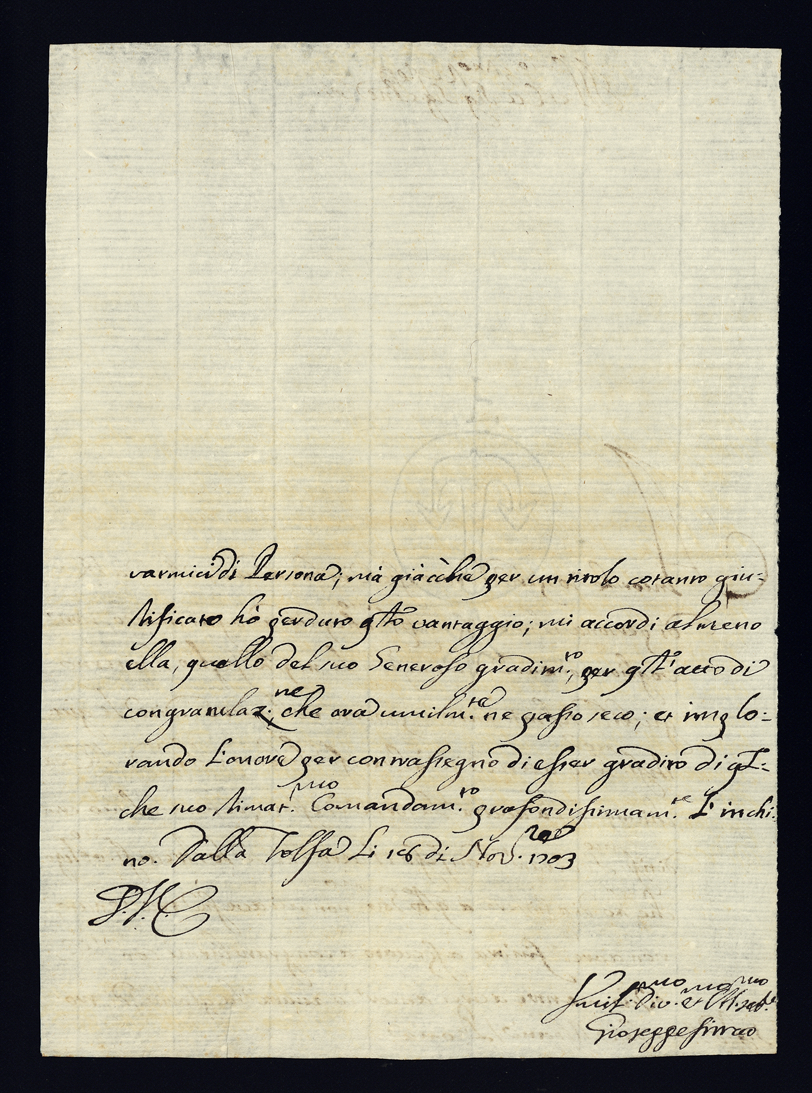 varmici di Persona; mà giàcche per un titolo cotanto giu=
stificato hò perduto q.sto vantaggio; mi accordi almeno
ella, quello del suo Generoso gradim.to, per q.sto atto di
congratulaz.ne, che ora umilm.te ne passo seco; et implo=
rando l'onore per contrassegno di esser gradito di qĺ=
che suo stimat.mo Comandam.to profondissimam.te L'inchi=
no. Dalla Tolfa Li 16 di Nov.re 1703
Giuseppe